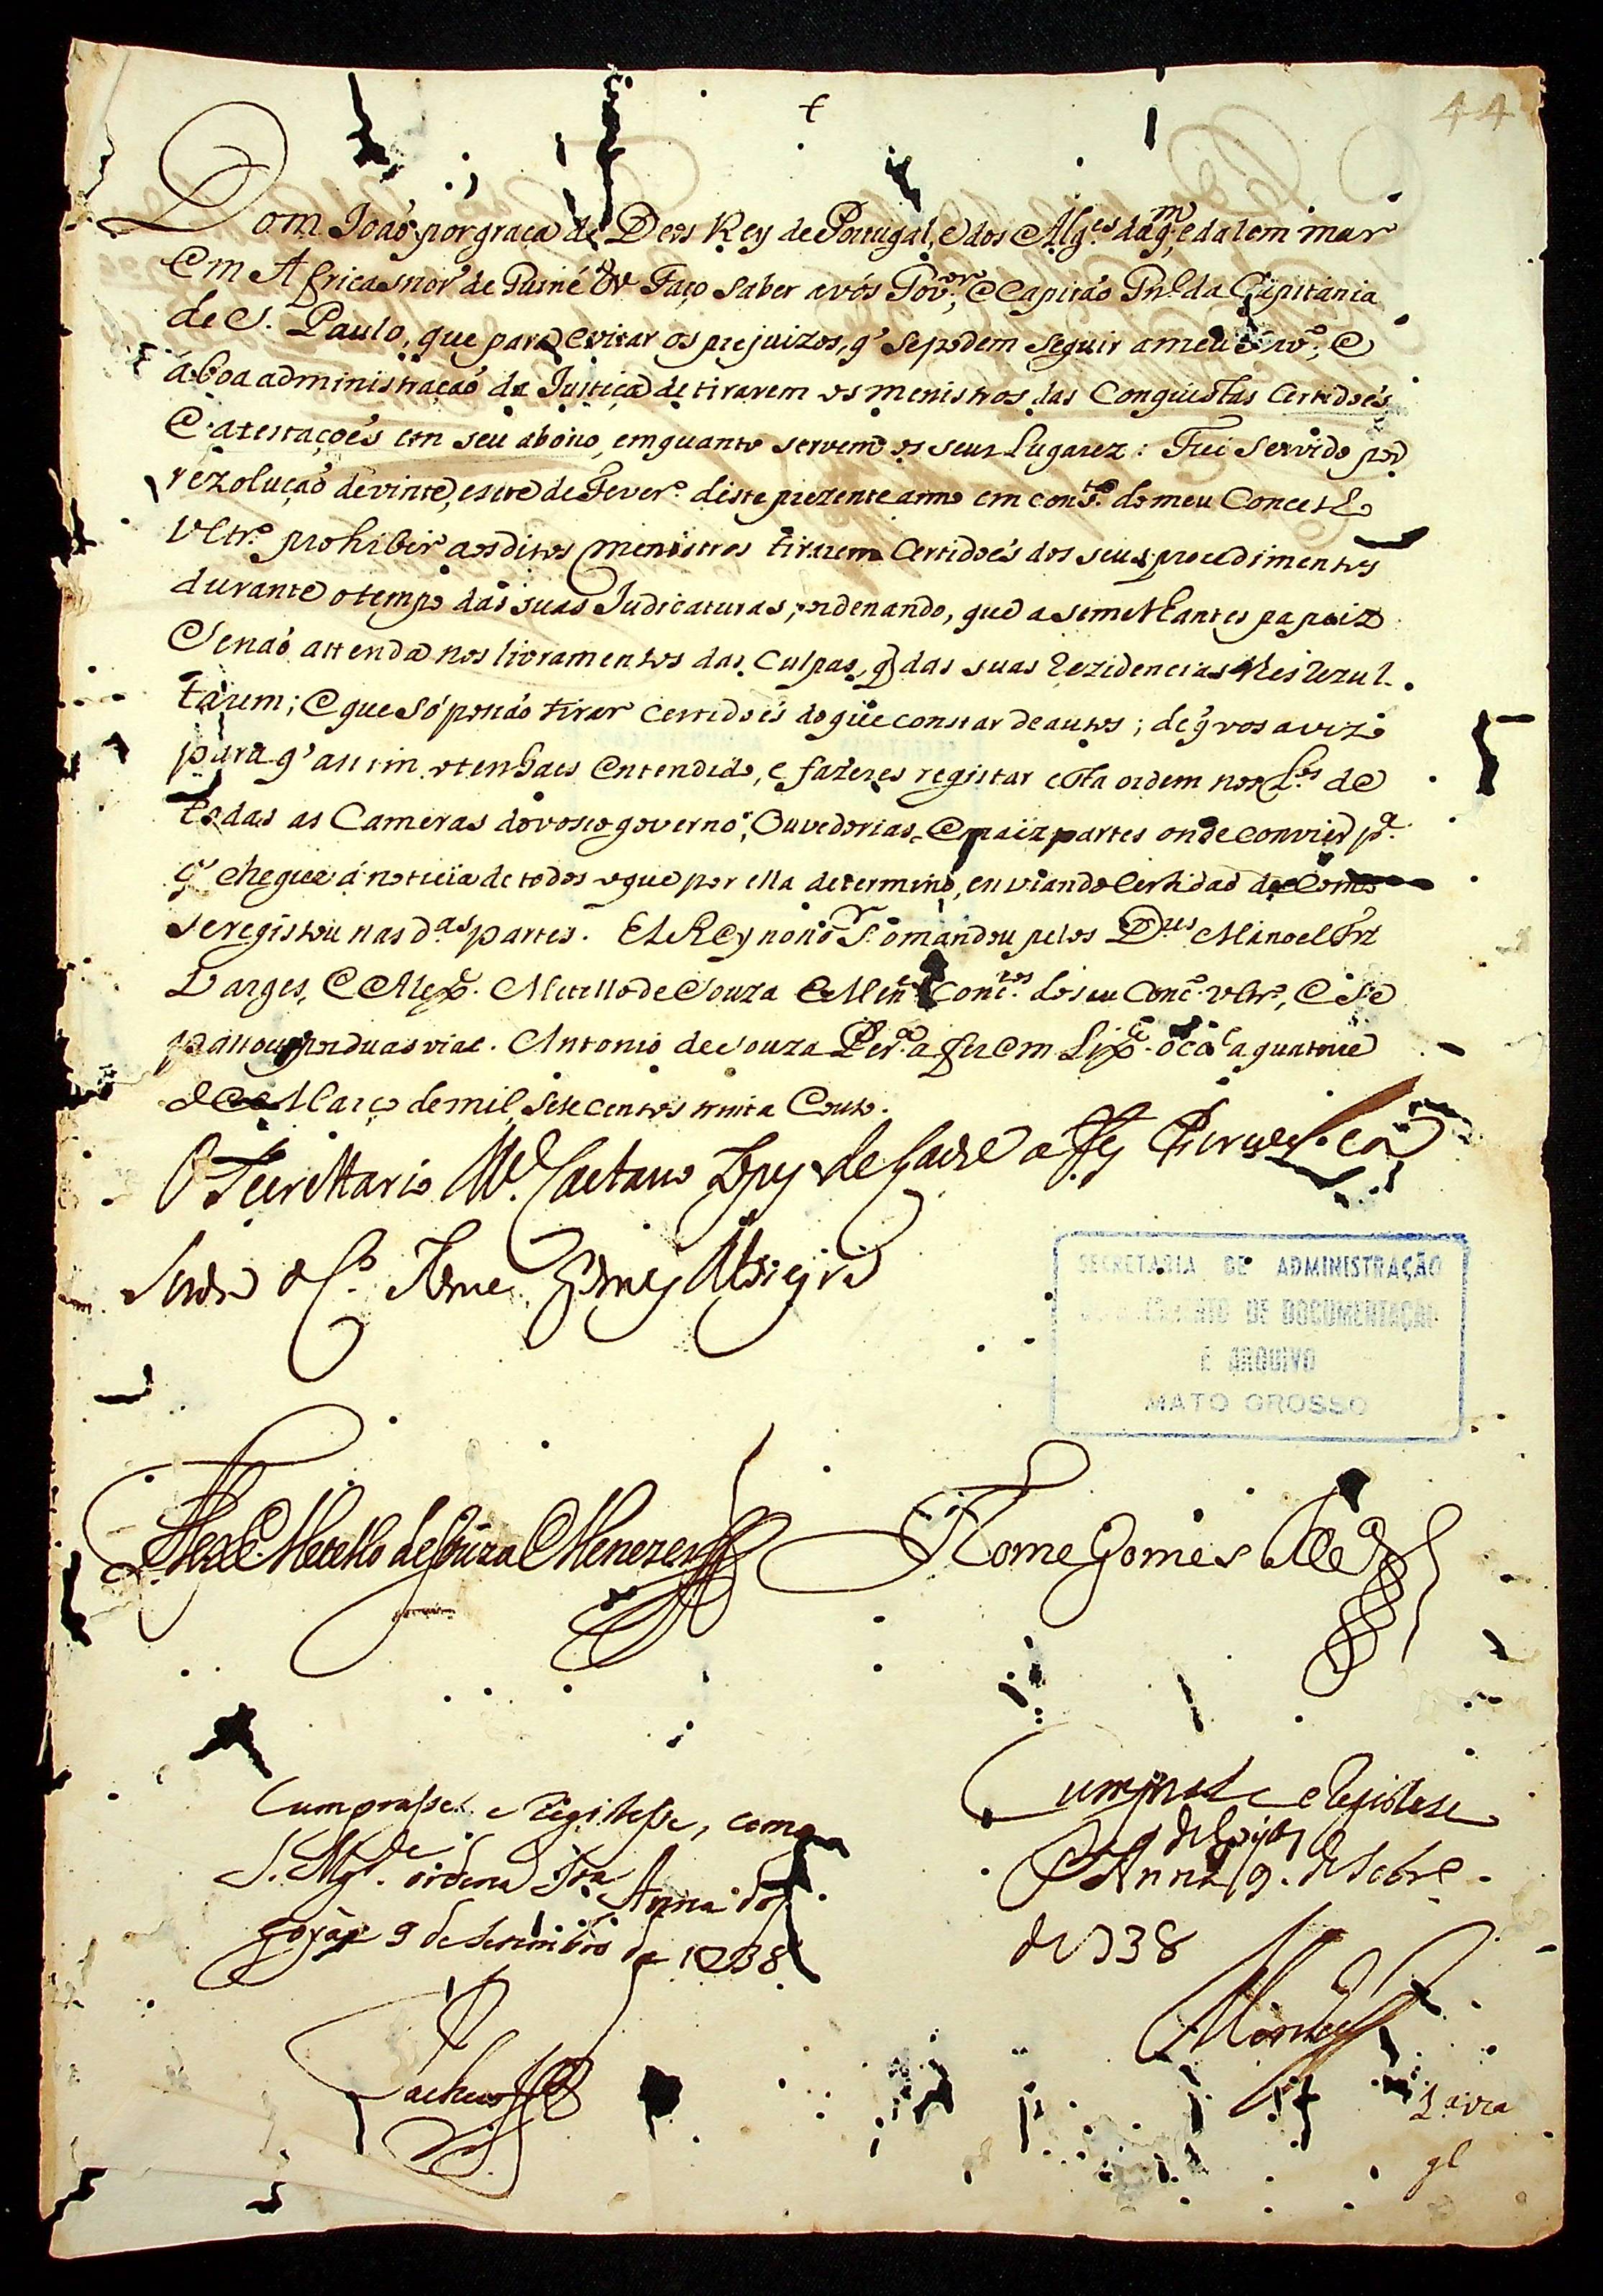 44
Dom João por graça de Deos Rey de Portugal, e dos Alg.es daq.m, e dalem mar
em Africa snor' de Guiné &v Faço saber avós Gov.or, e Capitão Gn.l da Capitania
de S. Paulo, que para evitar os prejuizos, q' se podem seguir a meu serv.o, e
á boa administração da Justiça de tirarem os menistros das Conquistas Certidoes
e atestações em seu abono, emquanto servem os seus Lugarez: Fui servido por
rezolução de vinte, e sete de Fever.o deste prezente anno em cons.ta do meu Concelho
Vltr.o prohibir aos ditos menistros tirarem Certidoés dos seus procedimentos
durante o tempo das suas Judicaturas, ordenando, que a semelhantes papeiz
Senaó attenda nos livramentos das Culpas, q' das suas rezidencias lhes rezul-
tarem; e que só poñão tirar certidoés do que constar de autos; de q' vos avizo
para q' assim o tenhaes entendido, e fazeres registar esta ordem nos L.os de
todas as Cameras do vosso governo, Ouvedorias, e maiz partes onde convier p.a
q' chegue á noticia de todos o que por ella determino, enviando Certidaó de como
se registou nas d.as partes. ElRey nosso S.r o mandou pelos D.res Manoel Frz
Varges, e Alex.e Metello de Souza e Men.es Cons.ros do seu Conc.o vltr.o, e se
passou por duas vias. Antonio de Souza Per.a a fez em Lix.a occ.al a quatorze
de Março de mil sete centos trinta e outo.
O Secrettario M.el Caetano Lopes de Lavre a fes escrever. e a
Sinou o C.o Thome Gomes Moreyra
SECRETARIA DE ADMINISTRAÇÃO
DE DOCUMENTAÇÃO
E ARQUIVO
MATO GROSSO
Alex.e Metello de Souza e Menezes
Thome Gomes Mor.a
Cumprasse e Registesse, como
S. Mg.de ordena S.ta Anna dos
goyáz 9 de setembro de 1738
Pacheco
Cumprase e Registese
S. Anna 9. de Setbr.e
de goyas
de 738
1.a via
gl